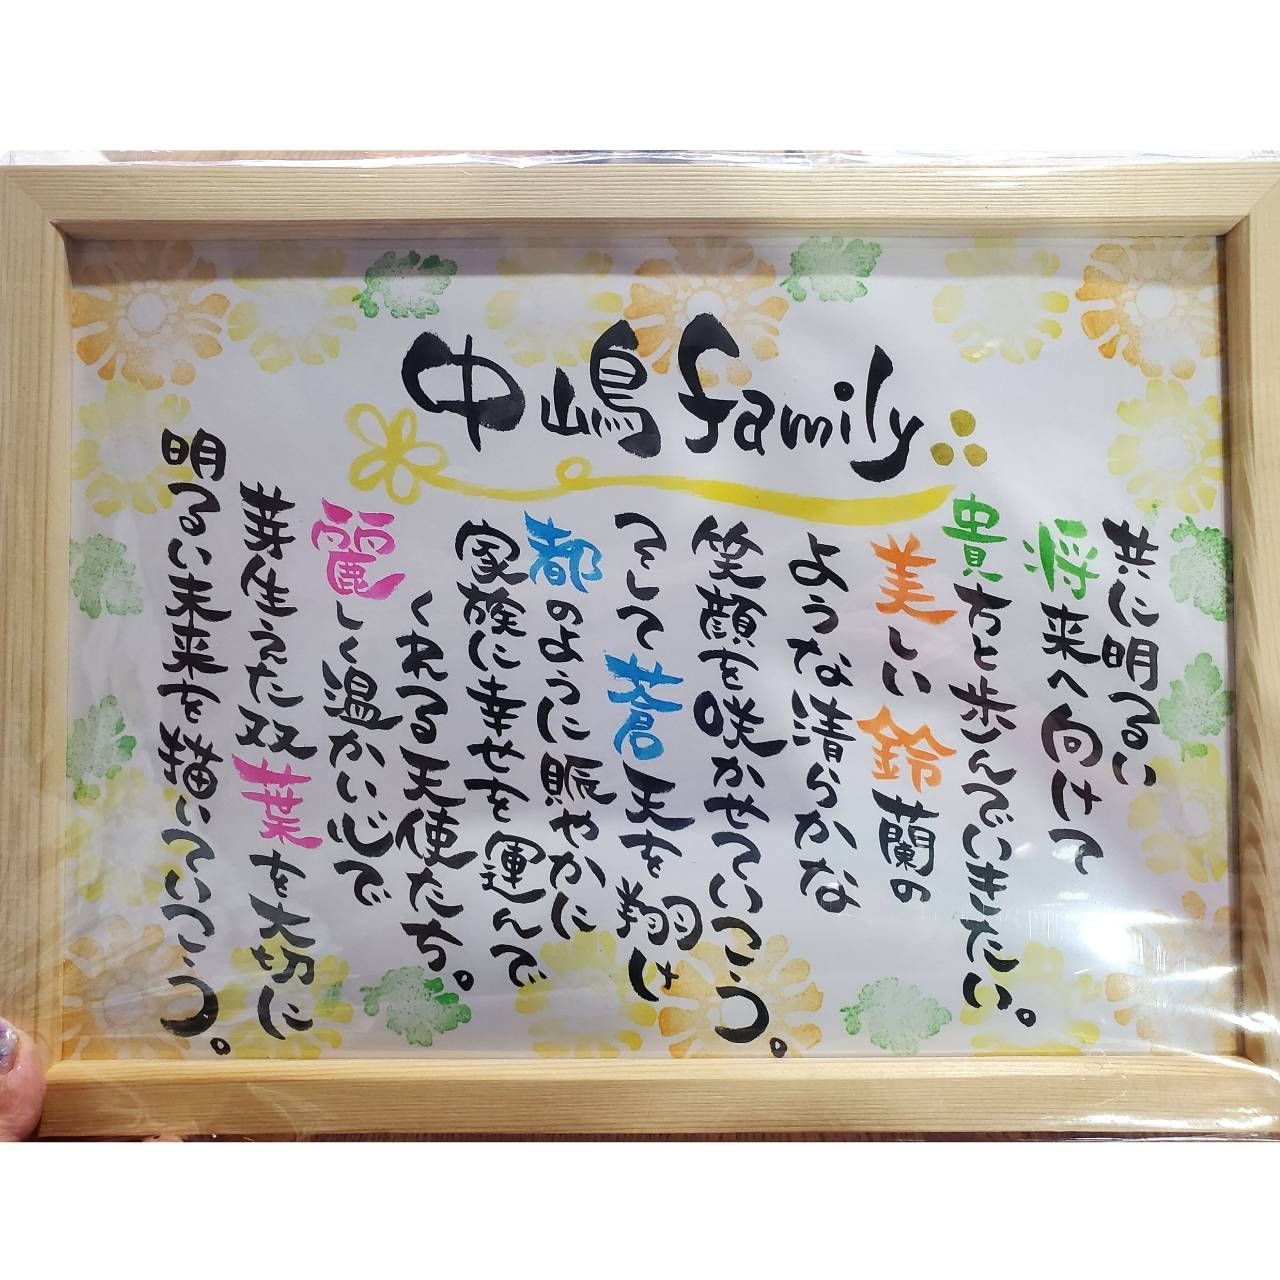 中嶋family
共に明るい
将来へ向けて
貴方と歩んでいきたい。
美しい鈴蘭の
ような清らかな
笑顔を咲かせていこう。
そして蒼天を翔け
都のように賑やかに
家族に幸せを運んで
くれる天使たち。
麗しく温かい心で
芽生えた双葉を大切に
明るい未来を描いていこう。